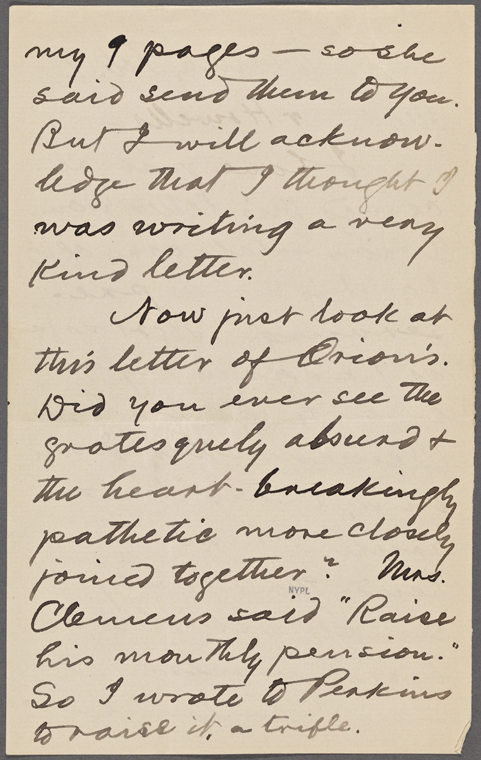 my 9 pages — so she
said send them to you.
But I will acknow-
ledge that I thought I
was writing a very
kind letter.
Now just look at
this letter of Orion's.
Did you ever see the
grotesquely absurd &
the heart-breakingly
pathetic more closely
joined together? Mrs.
NYPL
Clemens said "Raise
his monthly pension."
So I wrote to Perkins
to raise it, a trifle.